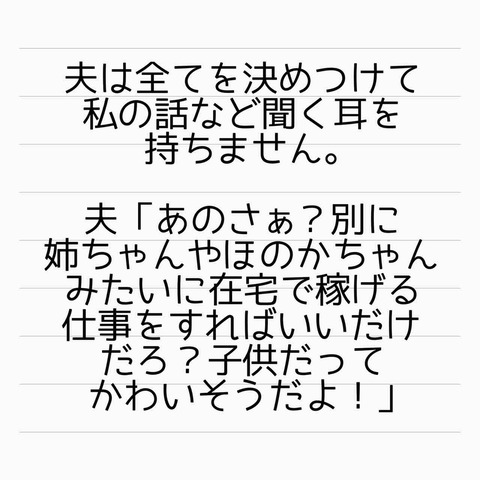 夫は全てを決めつけて
私の話など聞く耳を
持ちません。
夫「あのさぁ？別に
姉ちゃんやほのかちゃん
みたいに在宅で稼げる
仕事をすればいいだけ
だろ？子供だって
かわいそうだよ！」